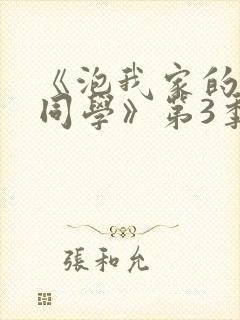 《泡我家的
同學》第3季
張和允